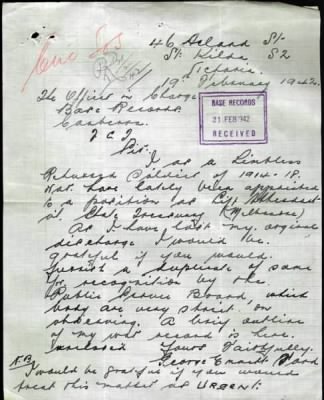 46 Acland St
St. Kilda S2
Victoria
19th February 1942
The Officer in Charge
Base Records
Canberra
F C T
BASE RECORDS
21 FEB 1942
RECEIVED
Sir.
I as a Limbless
Returned Soldier of 1914-18.
War. have lately been appointed
to a position as
at State Treasury (Melbourne)
As I have lost my original
discharge I would be
grateful if you would
furnish a duplicate of same
for recognition by the
Public Service Board, which
body are very strict on
observing. A brief outline
of my war record is here
Inclosed
Yours Faithfully.
George Ernest
N.B.
I would be grateful if you would
treat this matter as URGENT.